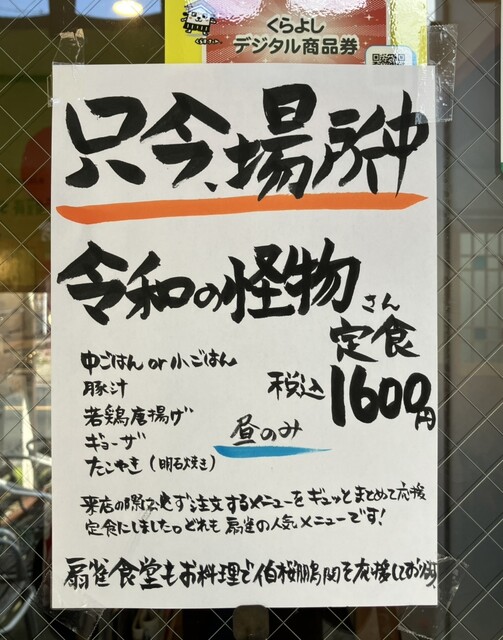 くらよし
デジタル商品券
只今、場所中
令和の怪物さん
定食
税込1600円
中ごはん or 小ごはん
豚汁
若鶏唐揚げ
ギョーザ
たこやき(明石焼き)
昼のみ
来店の際必ず注文するメニューをギュッとまとめて応援
定食にしました。どれも扇雀の人気メニューです!
扇雀食堂もお料理で伯桜鵬関を応援しており